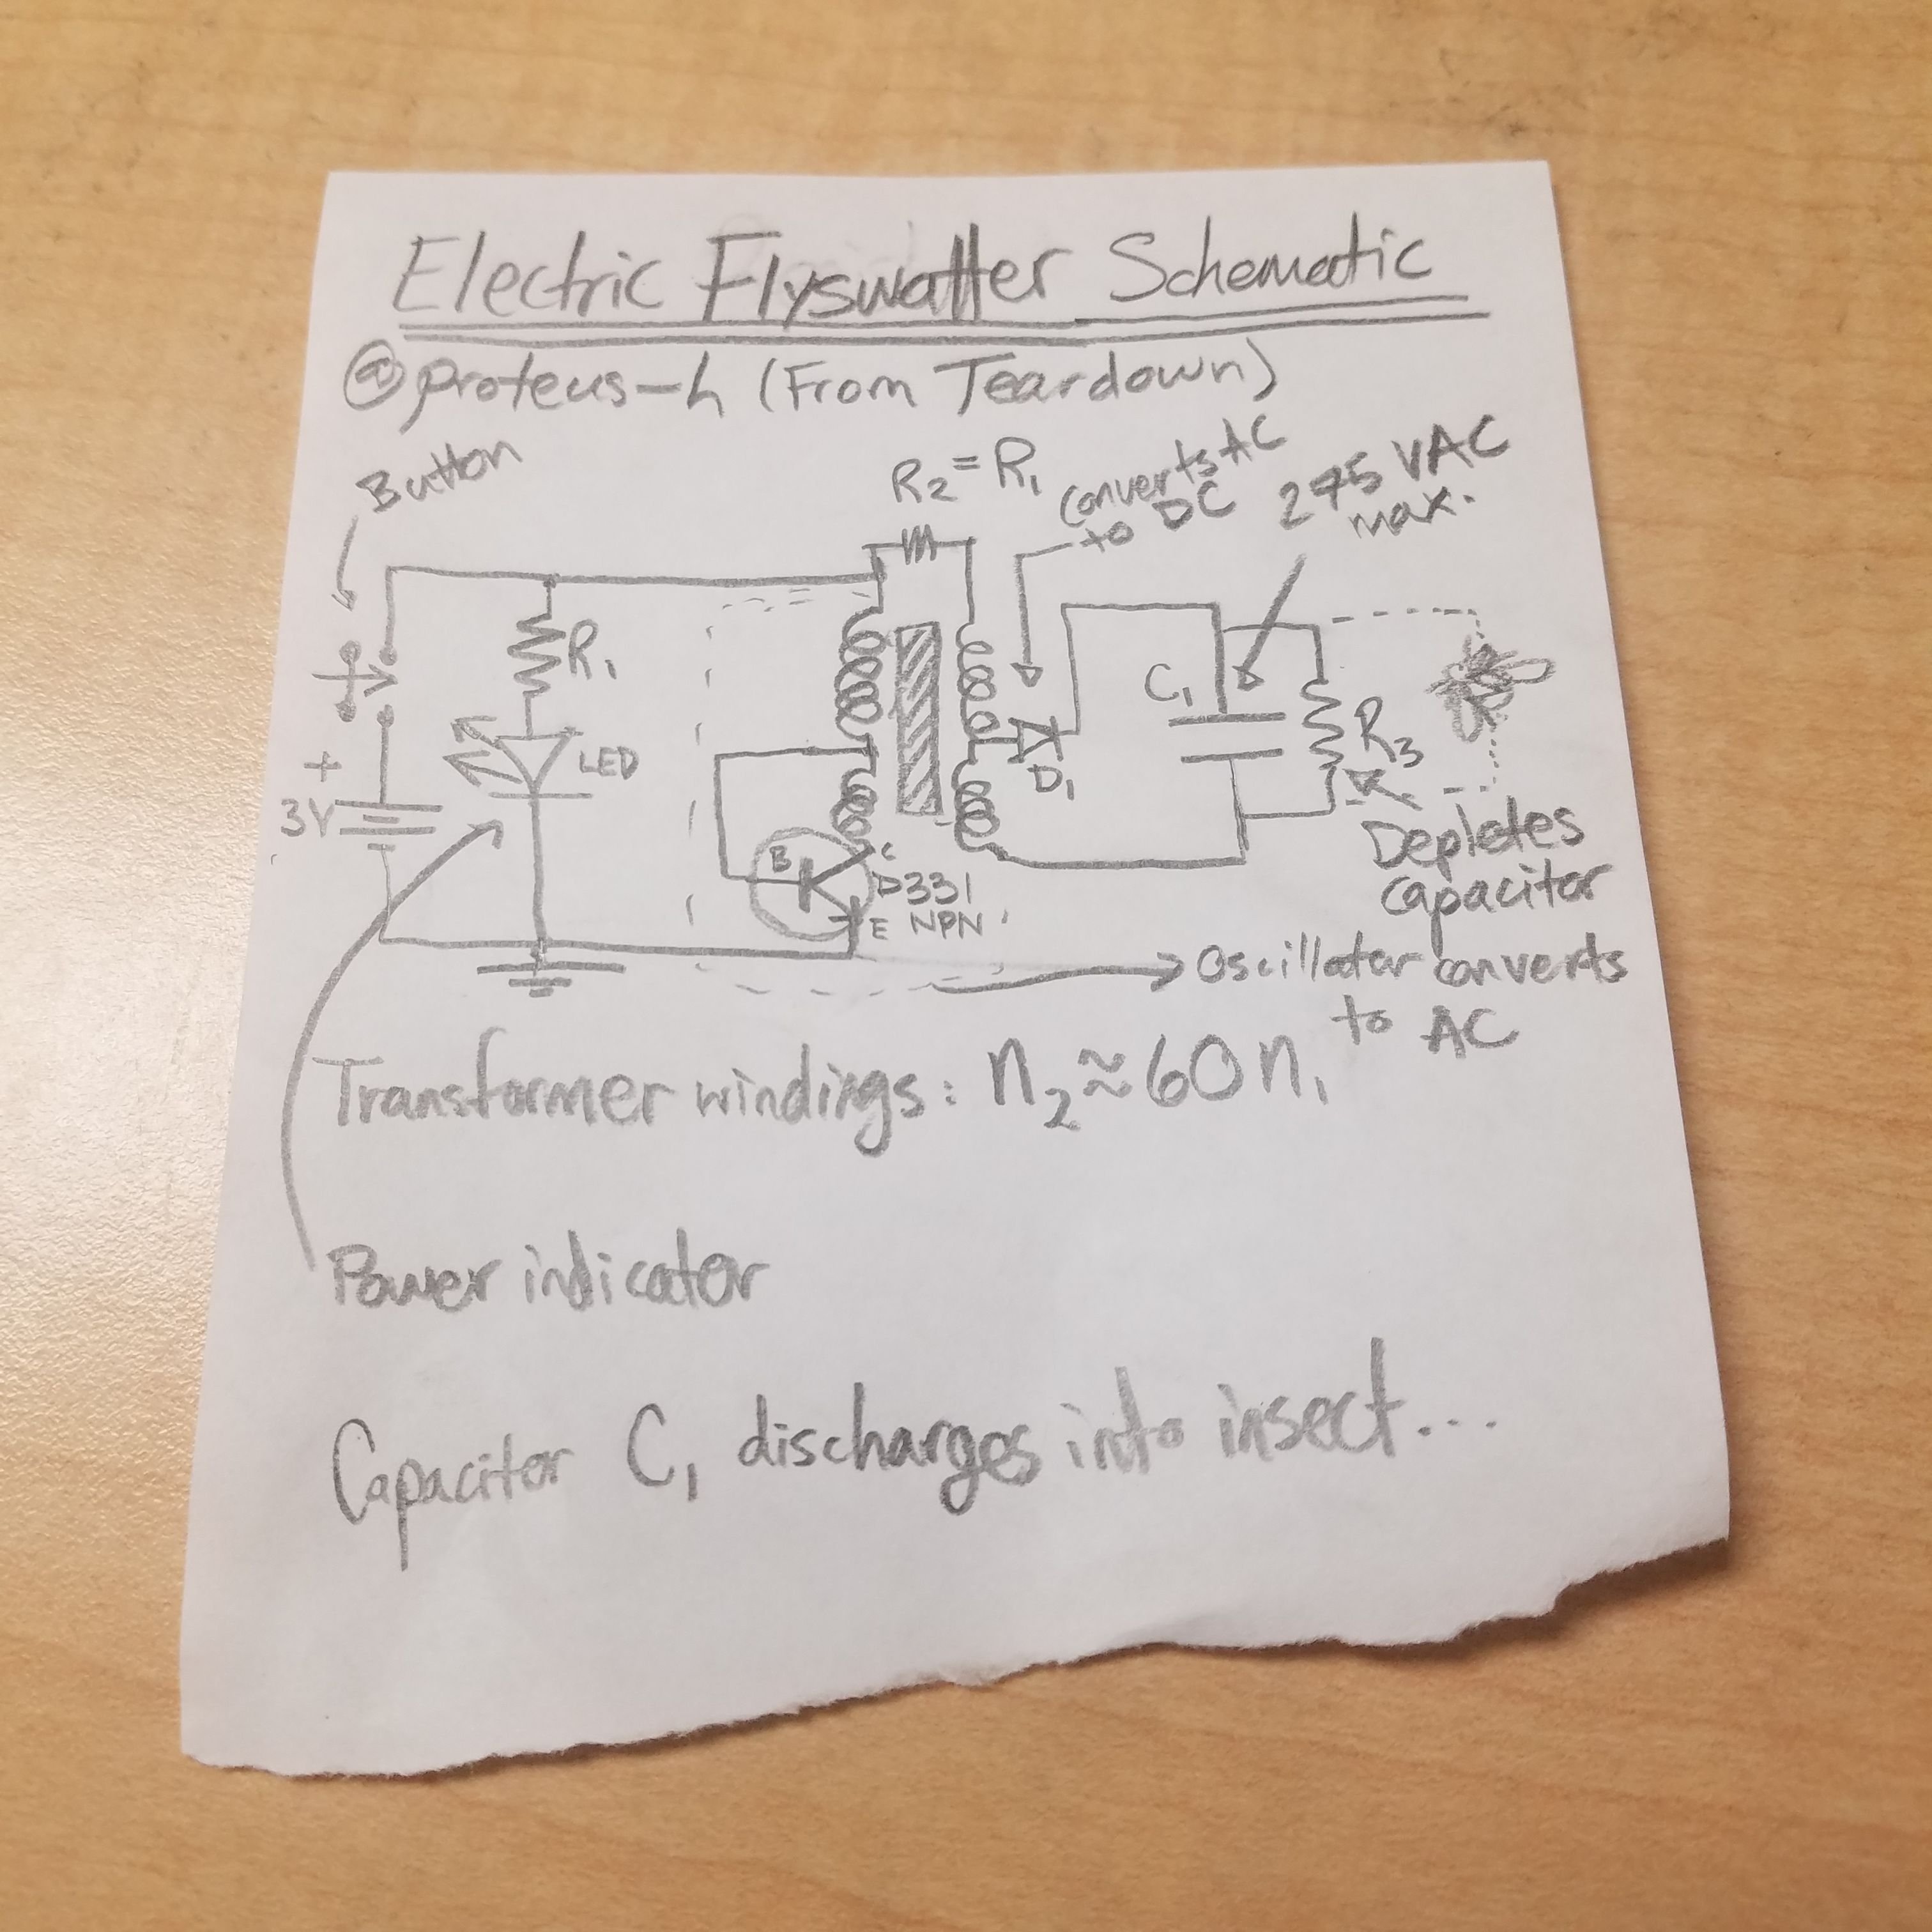 Electric Flyswatter Schematic
@proteus-h (From Teardown)
Button
R₂=R₁
Converts AC
to DC
275 VAC
max.
R₁
C₁
R₃
LED
D₁
+
3V
B
C
D331
E NPN
Depletes
Capacitor
Oscillator converts
to AC
Transformer windings: n₂≈60n₁
Power indicator
Capacitor C₁ discharges into insect...